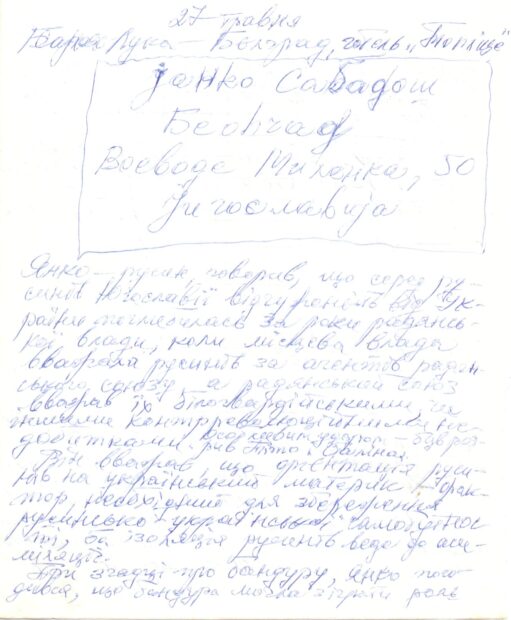 27 травня
Баня Лука – Белград, готель „
Јанко Сабадош
Београд
Воеводе Миленка, 50
Југославија
Янко – русин, говорив, що серед ру-
синів Югославії відчуженість від Ук-
раїни за роки радянсь-
кої влади, коли місцева влада
вважала русинів за агентів радян-
ського союзу, а радянський союз
вважав їх білогвардійськими чи
іншими контрреволюційними не-
добитками.
особливим ударом – був роз-
рив Тіто і Сталіна.
Він вважав, що орієнтація руси-
нів на український материк – фак-
тор, необхідний для збереження
русинсько-української самобутнос-
ті, бо ізоляція русинів веде до аси-
міляції.
При згадці про бандуру, Янко пого-
дився, що бандура могла зіграти роль